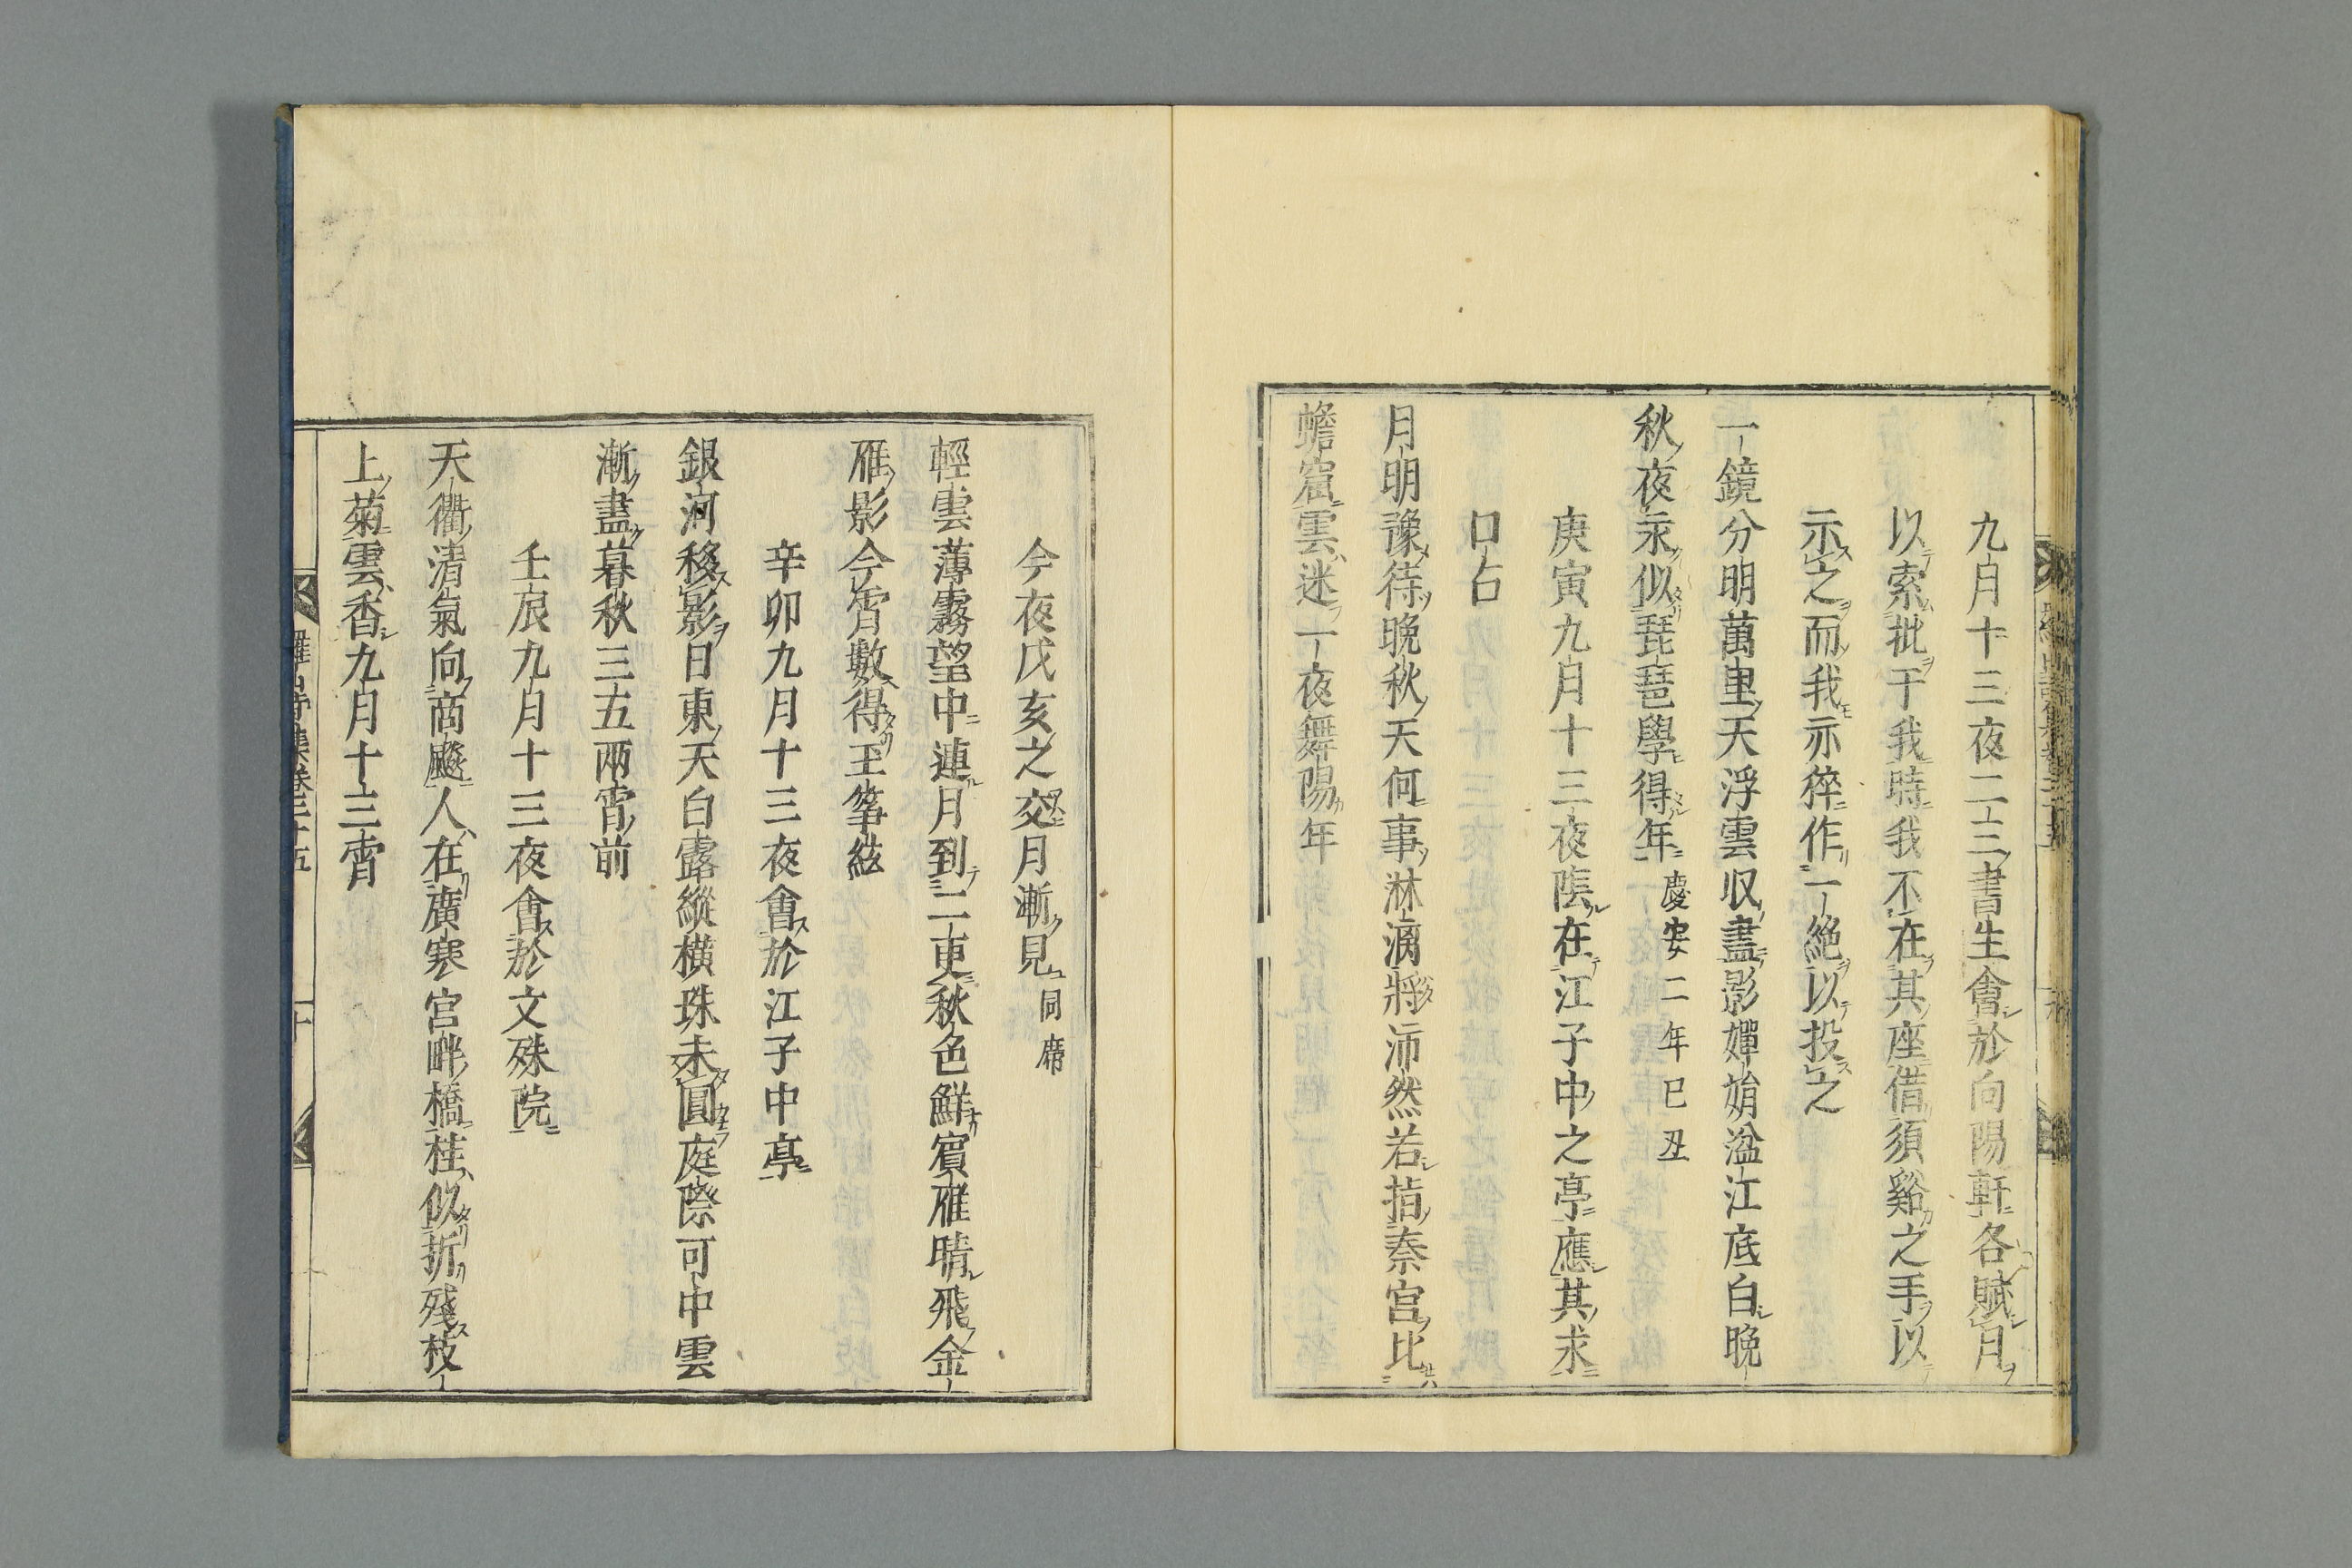 九月十三夜二三書生會於向陽軒各賦月
以索批于我時我不在其座借須谿之手以
示之而我亦猝作一絶以投之
一鏡分明萬里天浮雲収盡影嬋娟湓江底白晩
秋夜永似琵琶學得年慶安二年巳丑
庚寅九月十三夜陪在江子中之亭應其求
口占
月明豫待晩秋天何事淋漓將沛然若指秦宮比
蟾窟雲迷一夜舞陽年
今夜戊亥之交月漸見同席
輕雲薄霧望中連月到二更秋色鮮賔雁晴飛金
雁影今宵數得玉筝絃
辛卯九月十三夜會於江子中亭
銀河移影日東天白露縱橫珠未圓庭際可中雲
漸盡暮秋三五両宵前
壬辰九月十三夜會於文殊院
天衢清氣向商飈人在廣寒宮畔橋桂似折殘枝
上菊雲香九月十三宵
羅山詩集卷三十五
十